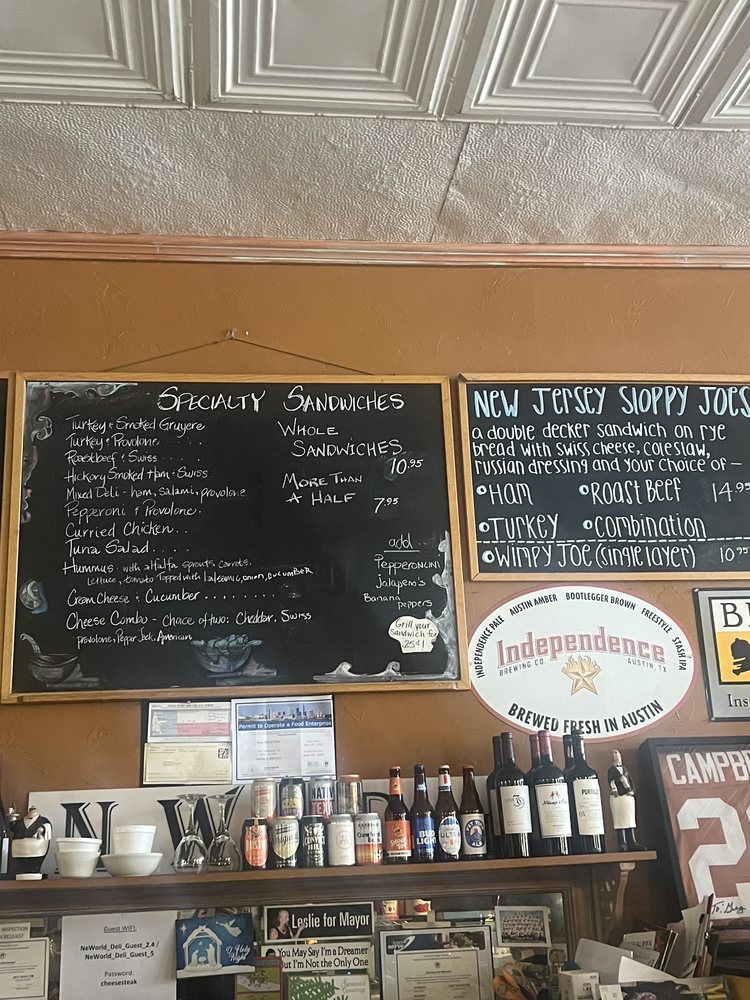 SPECIALTY SANDWICHES
Turkey & Smoked Gruyere
Turkey & Provolone . . . . .
Roast beef & Swiss . . . .
Hickory Smoked Ham & Swiss
Mixed Deli - ham, salami, provolone
Pepperoni & Provolone.
Curried Chicken. .
Tuna Salad . . . . .
Hummus - with alfalfa sprouts, carrots,
lettuce, tomato topped with balsamic, onion, cucumber
Cream Cheese & Cucumber . . . . . . . .
Cheese Combo - Choice of two: Cheddar, Swiss
provolone, Pepper Jack, American
WHOLE
SANDWICHES
10.95
MORE THAN
A HALF 7.95
add
Pepperoncini
Jalapeno's
Banana
peppers
Grill your
Sandwich for
25¢!
NEW JERSEY SLOPPY JOES
a double decker sandwich on rye
bread with swiss cheese, coleslaw,
russian dressing and your choice of -
HAM ROAST BEEF 14.95
TURKEY COMBINATION
WIMPY JOE (single layer) 10.95
INDEPENDENCE PALE AUSTIN AMBER BOOTLEGGER BROWN FREESTYLE STASH IPA
Independence
BREWING CO. AUSTIN, TX
BREWED FRESH IN AUSTIN
Inst
Permit to Operate a Food Enterprise
N W
CAMPB
2
BUD
LIGHT
ULTRA
Guest WIFI:
NeWorld_Deli_Guest_2.4 /
NeWorld_Deli_Guest_5
Password:
cheesesteak
O Holy
Night
Leslie for Mayor
You May Say I'm a Dreamer
But I'm Not the Only One